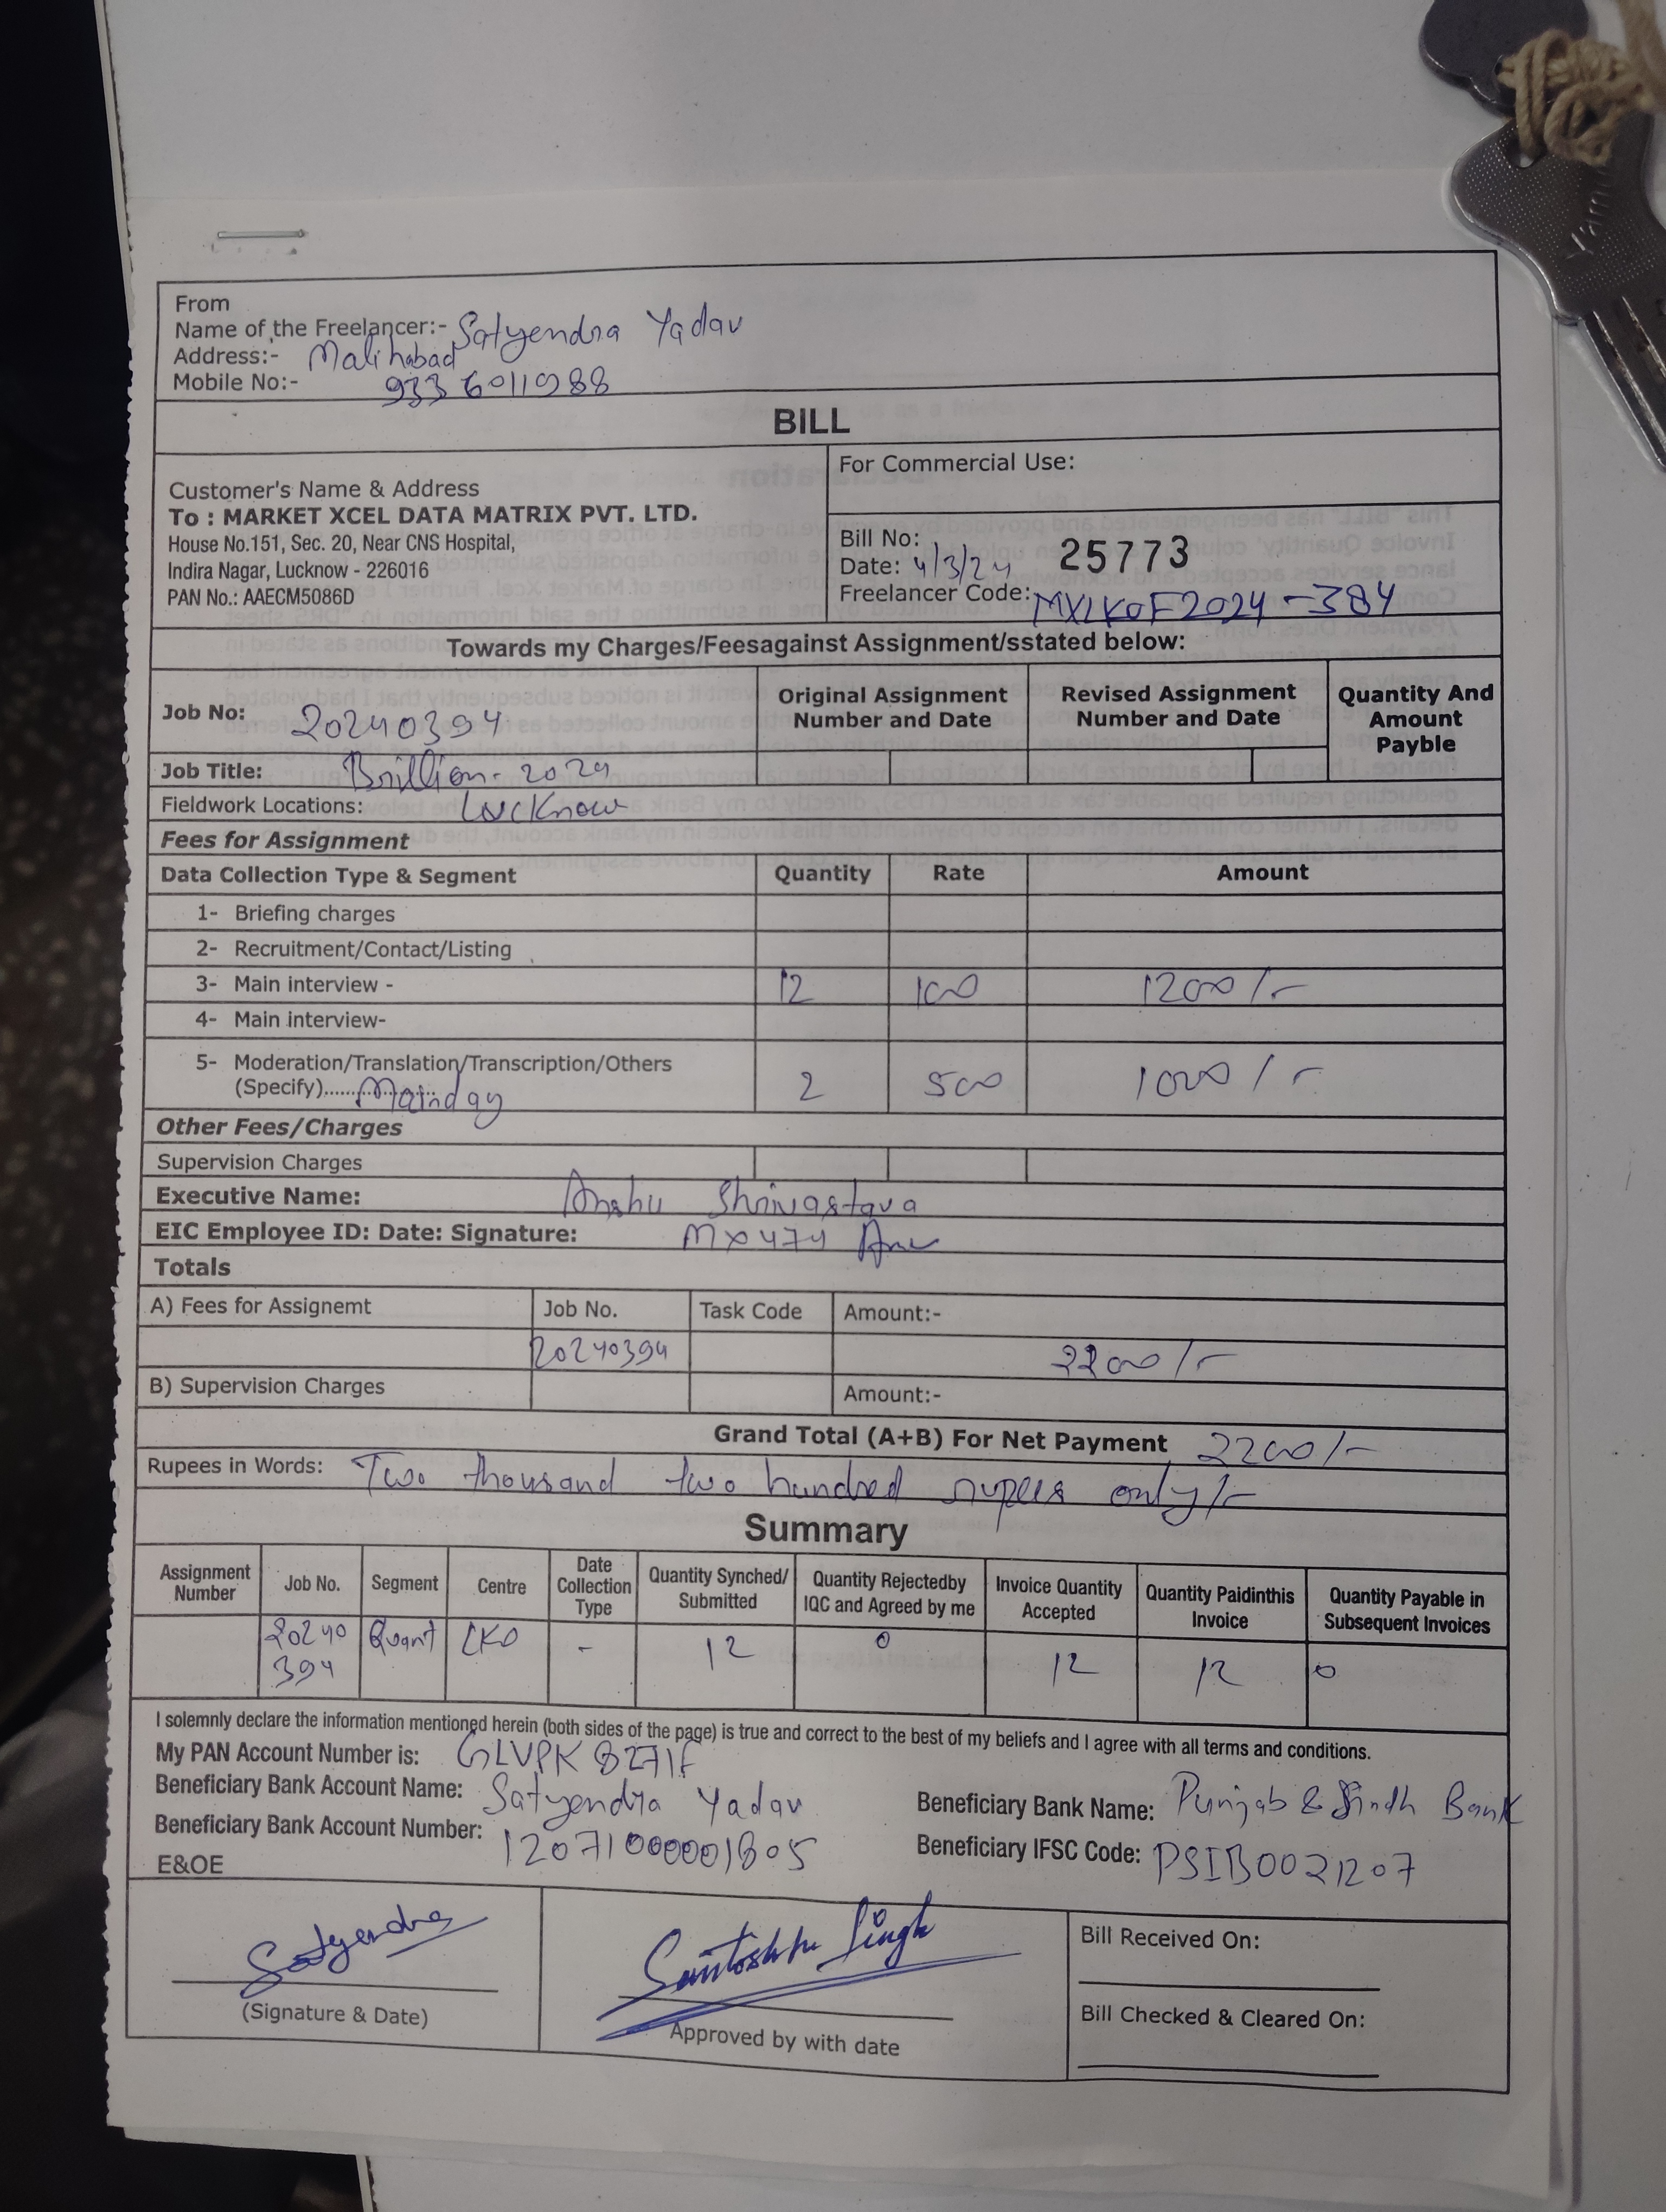 From
Name of the Freelancer:- Satyendra Yadav
Address:- Malihabad
Mobile No:- 9336011988
BILL
Customer's Name & Address
To : MARKET XCEL DATA MATRIX PVT. LTD.
House No.151, Sec. 20, Near CNS Hospital,
Indira Nagar, Lucknow - 226016
PAN No.: AAECM5086D
For Commercial Use:
Bill No: 25773
Date: 4/3/24
Freelancer Code: MXLKOF2024-384
Towards my Charges/Feesagainst Assignment/sstated below:
Job No: 20240394
Original Assignment Number and Date
Revised Assignment Number and Date
Quantity And Amount Payble
Job Title: Brillion-2024
Fieldwork Locations: Lucknow
Fees for Assignment
Data Collection Type & Segment Quantity Rate Amount
1- Briefing charges
2- Recruitment/Contact/Listing
3- Main interview - 12 100 1200/-
4- Main interview-
5- Moderation/Translation/Transcription/Others
(Specify)........ Mainday 2 500 1000/-
Other Fees/Charges
Supervision Charges
Executive Name: Anshu Shrivastava
EIC Employee ID: Date: Signature: MX474
Totals
A) Fees for Assignemt Job No. Task Code Amount:-
20240394 2200/-
B) Supervision Charges Amount:-
Grand Total (A+B) For Net Payment 2200/-
Rupees in Words: Two thousand two hundred rupees only/-
Summary
Assignment Number Job No. Segment Centre Date Collection Type Quantity Synched/ Submitted Quantity Rejectedby IQC and Agreed by me Invoice Quantity Accepted Quantity Paidinthis Invoice Quantity Payable in Subsequent Invoices
20240394 Quant LKO - 12 0 12 12 0
I solemnly declare the information mentioned herein (both sides of the page) is true and correct to the best of my beliefs and I agree with all terms and conditions.
My PAN Account Number is: GLVPK8271F
Beneficiary Bank Account Name: Satyendra Yadav
Beneficiary Bank Name: Punjab & Sindh Bank
Beneficiary Bank Account Number: 12071000001805
Beneficiary IFSC Code: PSIB0021207
E&OE
Satyendra
(Signature & Date)
Santosh Singh
Approved by with date
Bill Received On:
Bill Checked & Cleared On: